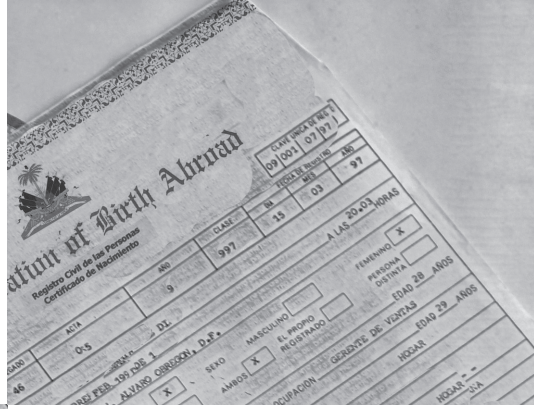 ation of Birth Abroad
Registro Civil de las Personas
Certificado de Nacimiento
CLAVE UNICA DE REG
09 001 07 97
FECHA DE REGISTRO
DIA MES AÑO
15 03 97
ACTA AÑO CLASE
0.5 9 997
46
A LAS 20.03 HORAS
DI.
FEB 199
ALVARO OBREGON, D.F.
SEXO MASCULINO FEMENINO X
X AMBOS X EL PROPIO REGISTRADO PERSONA DISTINTA
EDAD 28 AÑOS
OCUPACIÓN GERENTE DE VENTAS
EDAD 29 AÑOS
HOGAR
HOGAR